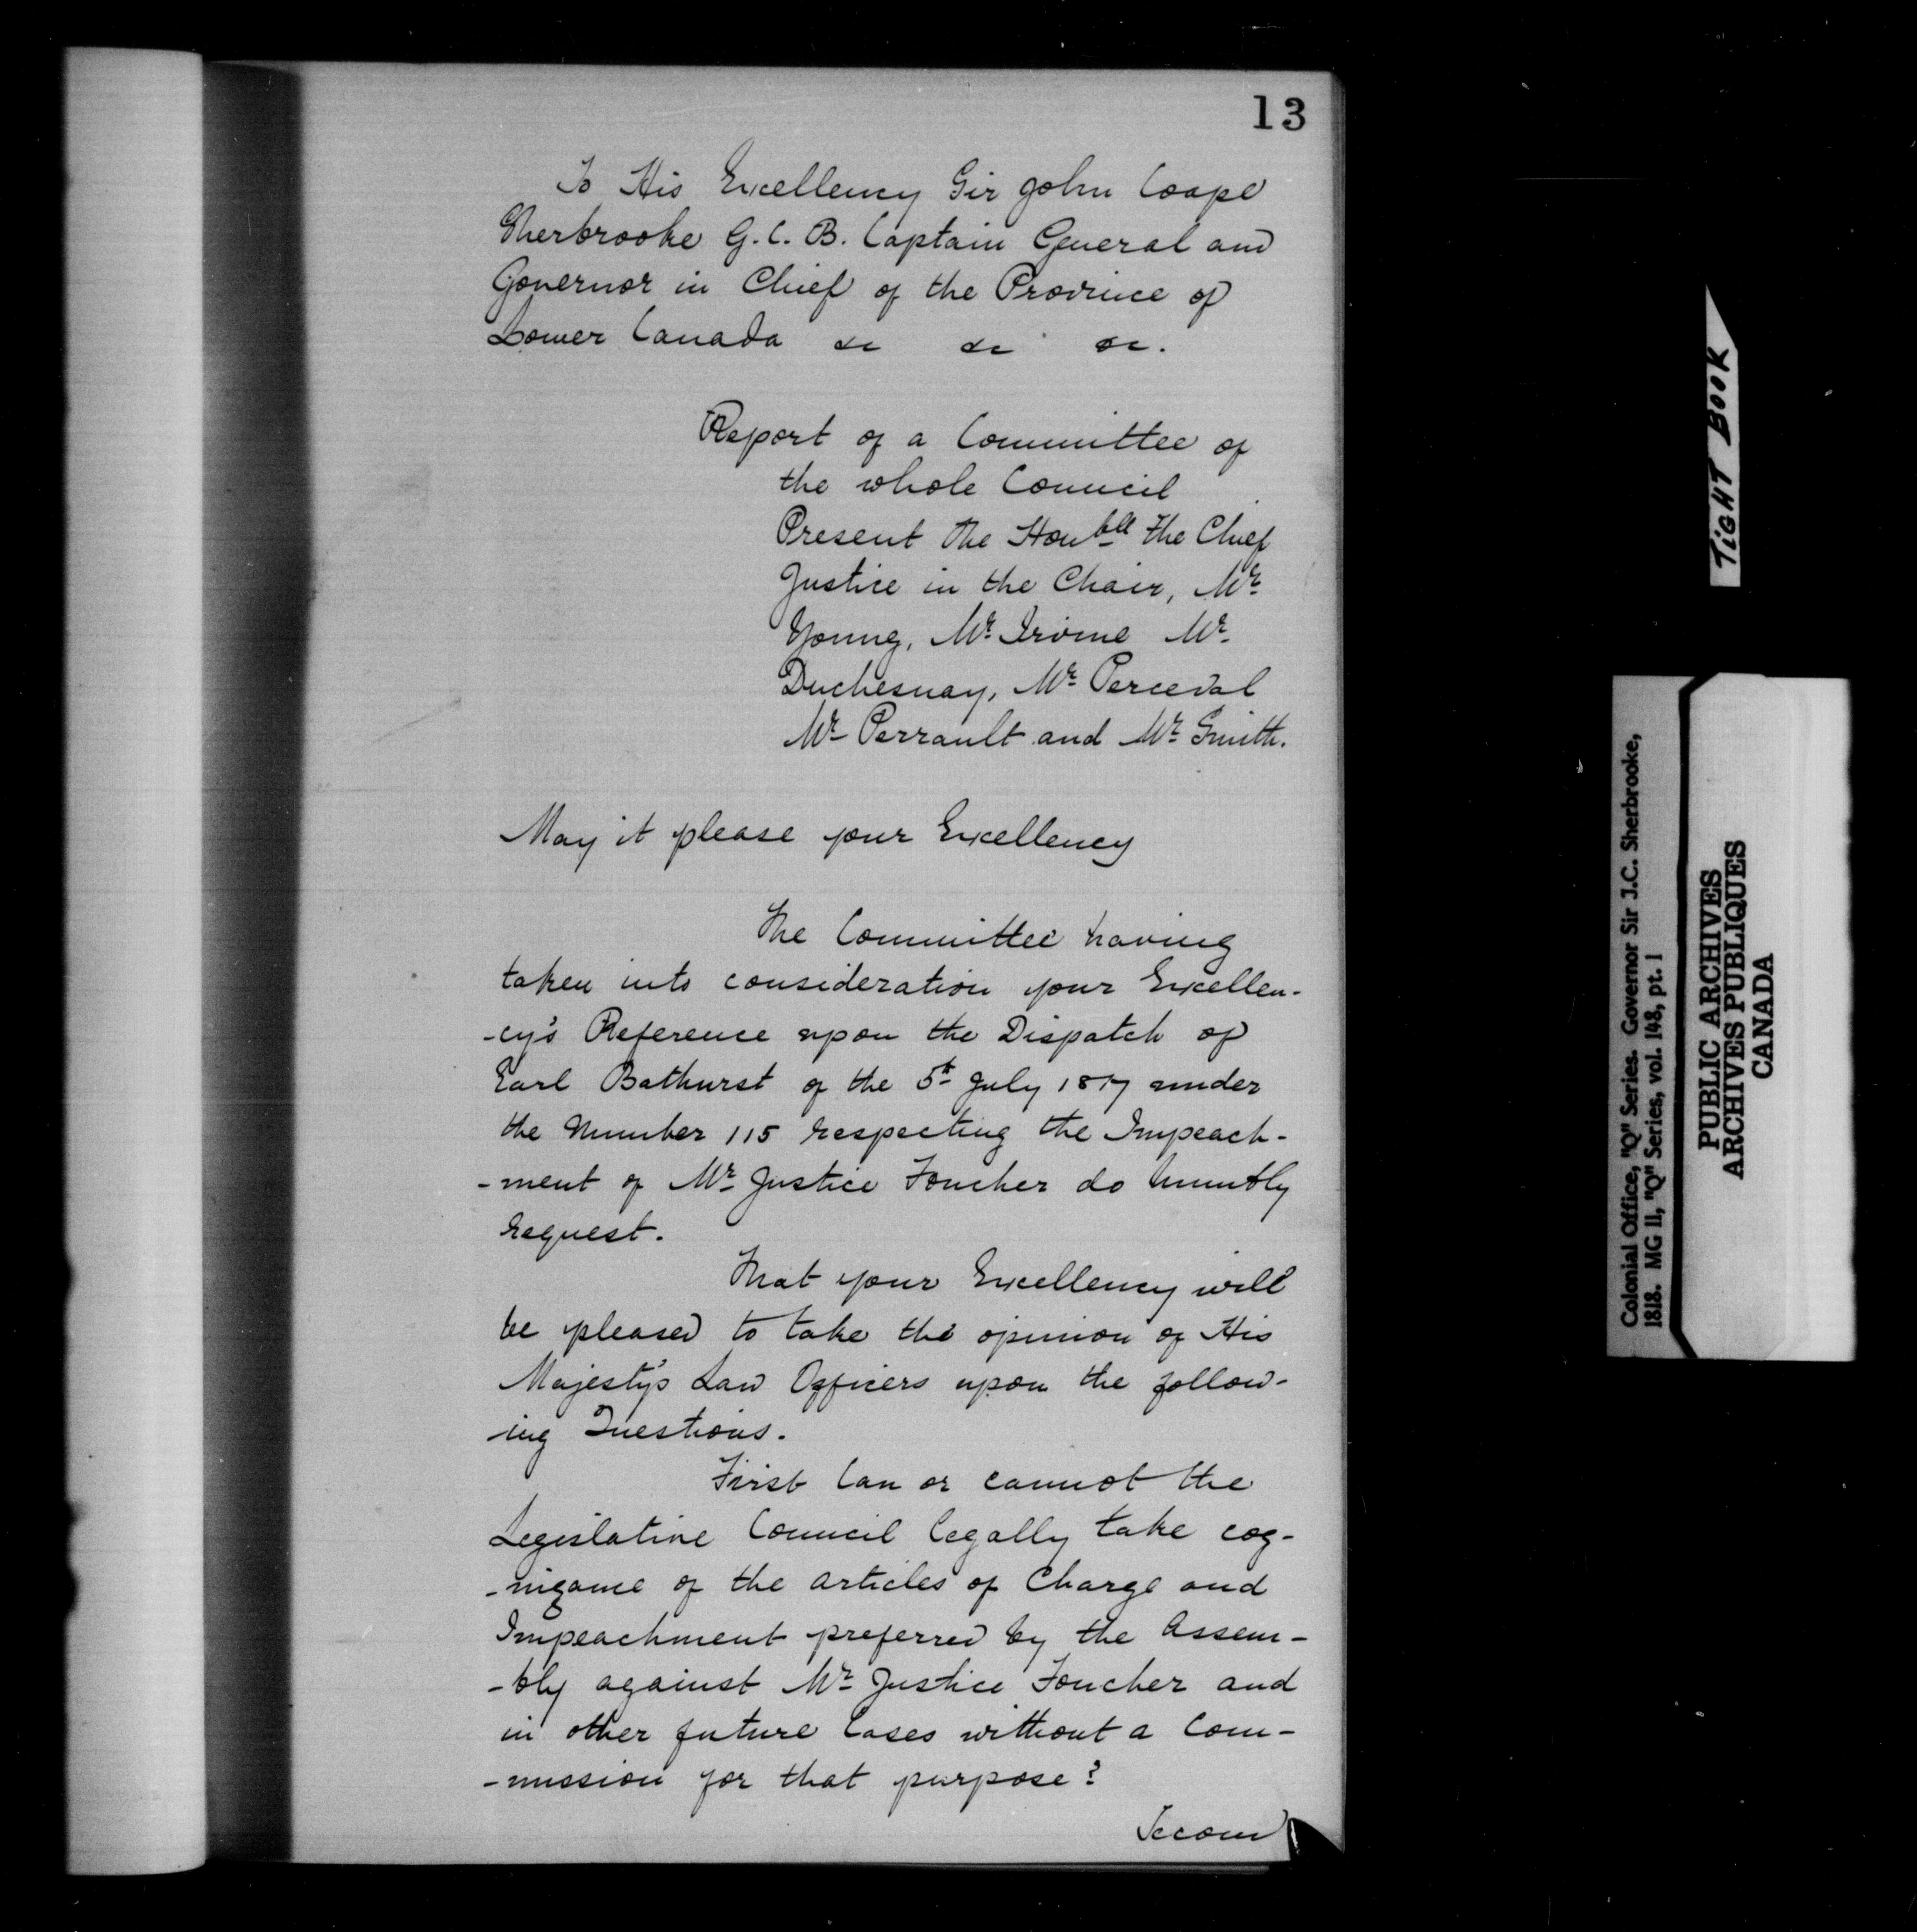 13
To His Excellency Sir John Coape
Sherbrooke G.C.B. Captain General and
Governor in Chief of the Province of
Lower Canada &c &c &c.
Report of a Committee of
the whole Council
Present The Honble The Chief
Justice in the Chair, Mr
Young, Mr Irvine Mr
Duchesnay, Mr Perceval
Mr Perrault and Mr Smith.
May it please your Excellency
The Committee having
taken into consideration your Excellen-
-cy's Reference upon the Dispatch of
Earl Bathurst of the 5th July 1817 under
the Number 115 respecting the Impeach-
-ment of Mr Justice Foucher do humbly
request.
That your Excellency will
be pleased to take the opinion of His
Majesty's Law Officers upon the follow-
-ing Questions.
First Can or cannot the
Legislative Council legally take cog-
-nizance of the articles of Charge and
Impeachment preferred by the Assem-
-bly against Mr Justice Foucher and
in other future Cases without a Com-
-mission for that purpose?
Second
TIGHT BOOK
Colonial Office, "Q" Series. Governor Sir J.C. Sherbrooke,
1818. MG 11, "Q" Series, vol. 148, pt. 1
PUBLIC ARCHIVES
ARCHIVES PUBLIQUES
CANADA